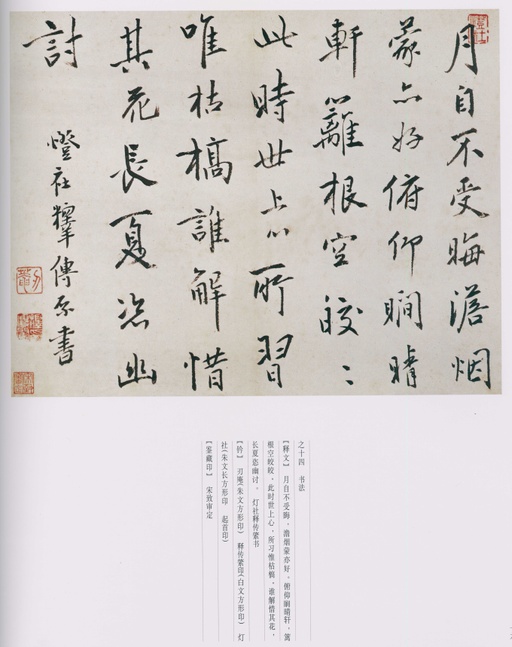 月自不受晦澹烟
蒙亦好俯仰瞯晴
軒籬根空皎〻
此時世上心所習
唯枯槁誰解惜
其花長夏恣幽
討
燈社釋傳綮書
之十四 书法
【释文】 月自不受晦，澹烟蒙亦好，俯仰瞯晴轩，篱
根空皎皎，此时世上心，所习惟枯槁，谁解惜其花，
长夏恣幽讨。 灯社释传綮书
【钤】 刃庵(朱文方形印) 释传綮印(白文方形印) 灯
社(朱文长方形印 起首印)
【鉴藏印】 宋致审定